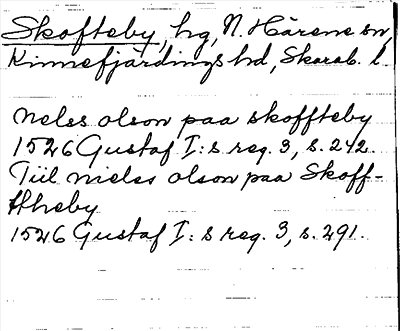 Skofteby, hg, N. Härene sn,
Kinnefjärdings hd, Skarab. l.
neles olson paa skoffteby
1526 Gustaf I:s reg. 3, s. 242.
Tiil nieles olson paa Skoff-
ththeby
1526 Gustaf I:s reg. 3, s. 291.